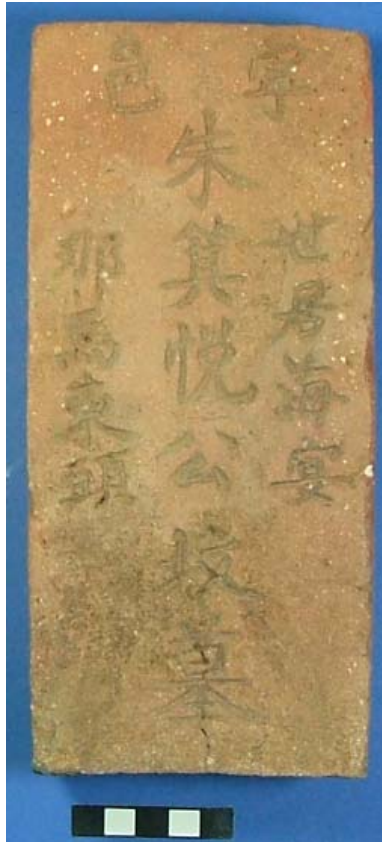 寕邑
世居海宴
朱箕悦公坟墓
那馬東頭